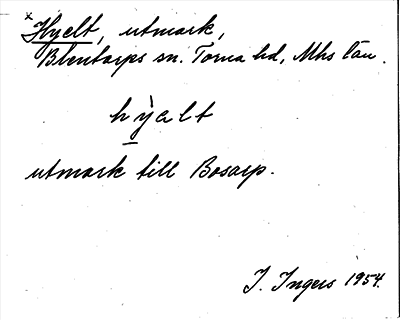 x Hyelt, utmark,
Blentarps sn. Torna hd, Mhs län.
hỳalt
utmark till Bosarp.
I. Ingers 1954.